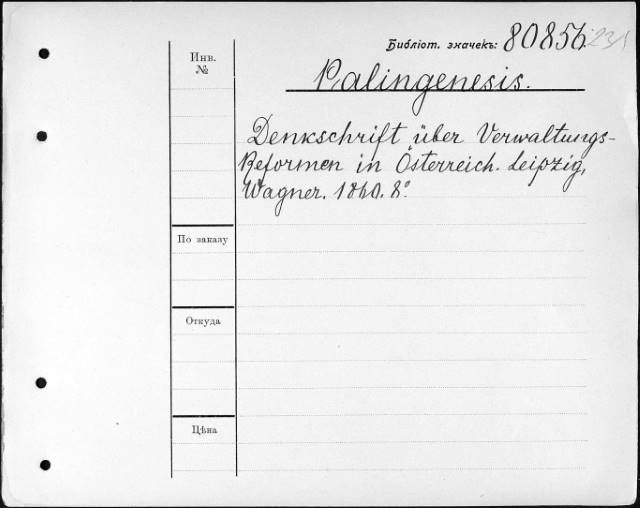 Библіот. значекъ: 80856
Инв.
№
Palingenesis.
Denkschrift über Verwaltungs-
Reformen in Österreich. Leipzig,
Wagner. 1860. 8°.
По заказу
Откуда
Цѣна